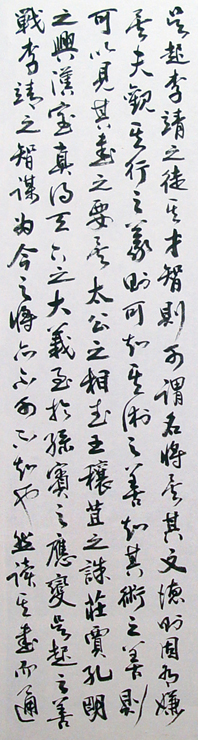 吳起李靖之徒其才智則可謂名將矣其文德則固有嫌
矣夫觀其行之義則可知其術之善知其術之善則
可以見其書之要矣太公之相武王穰苴之誅莊賈孔明
之興漢室真得天下之大義至於孫賓之應變吳起之善
戰李靖之智謀為今之將亦不可不知也然讀其書而通